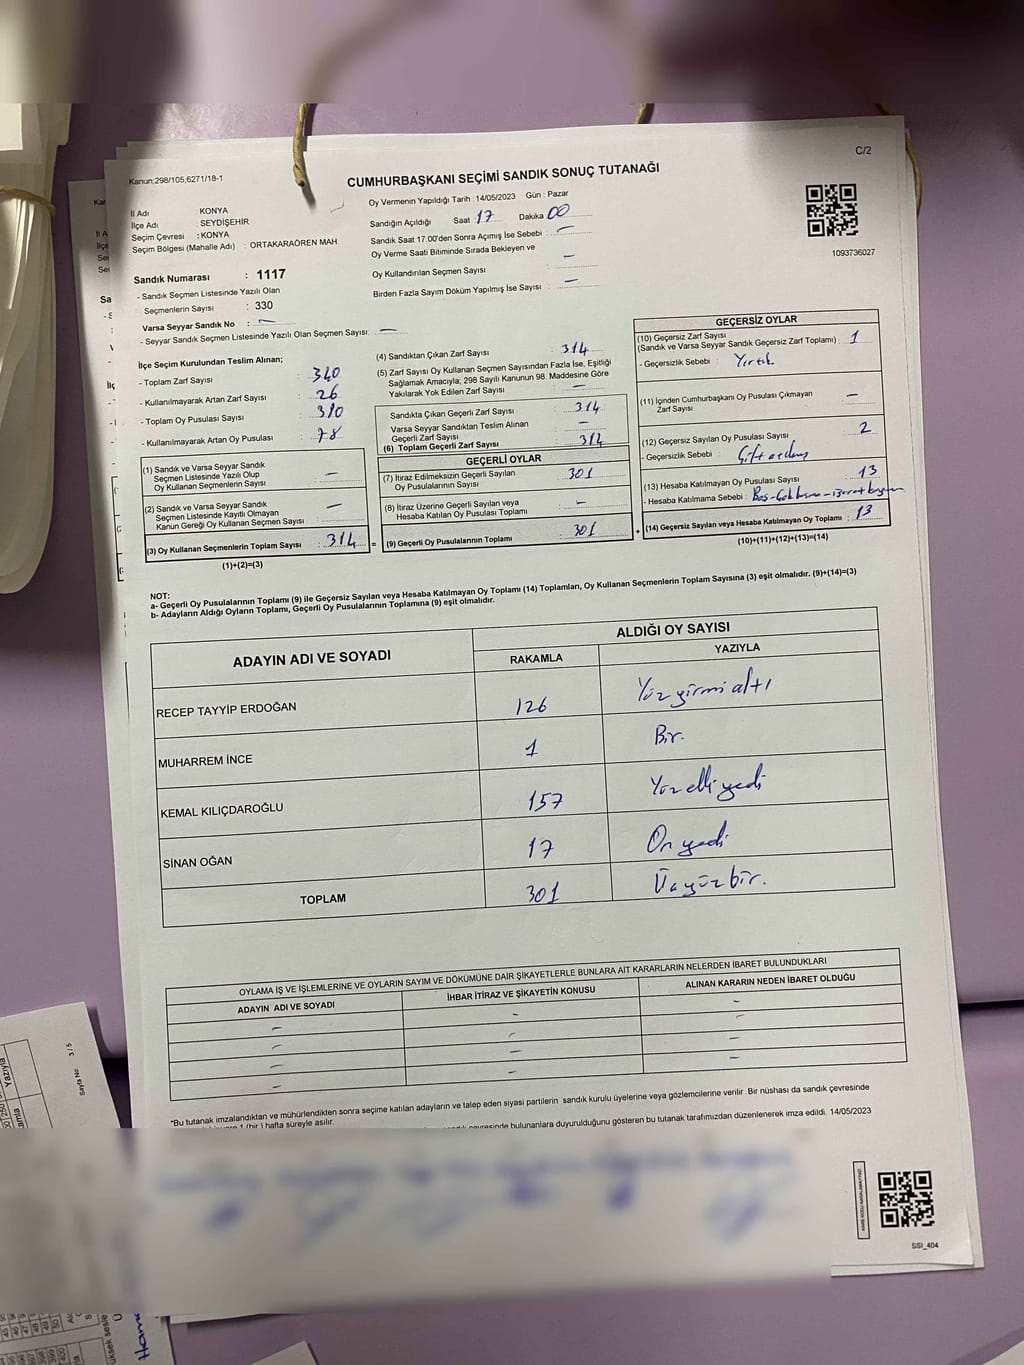 Kanun;298/105,6271/18-1
C/2
CUMHURBAŞKANI SEÇİMİ SANDIK SONUÇ TUTANAĞI
Oy Vermenin Yapıldığı Tarih : 14/05/2023 Gün : Pazar
İl Adı : KONYA
İlçe Adı : SEYDİŞEHİR
Seçim Çevresi : KONYA
Seçim Bölgesi (Mahalle Adı) : ORTAKARAÖREN MAH
Sandık Numarası : 1117
- Sandık Seçmen Listesinde Yazılı Olan
Seçmenlerin Sayısı : 330
Varsa Seyyar Sandık No : –
- Seyyar Sandık Seçmen Listesinde Yazılı Olan Seçmen Sayısı: –
Sandığın Açıldığı Saat 17 Dakika 00
Sandık Saat 17:00'den Sonra Açımış İse Sebebi : –
Oy Verme Saati Bitiminde Sırada Bekleyen ve
Oy Kullandırılan Seçmen Sayısı : –
Birden Fazla Sayım Döküm Yapılmış İse Sayısı : –
1093736027
İlçe Seçim Kurulundan Teslim Alınan;
- Toplam Zarf Sayısı : 340
- Kullanılmayarak Artan Zarf Sayısı : 26
- Toplam Oy Pusulası Sayısı : 390
- Kullanılmayarak Artan Oy Pusulası : 78
(1) Sandık ve Varsa Seyyar Sandık
Seçmen Listesinde Yazılı Olup
Oy Kullanan Seçmenlerin Sayısı : –
(2) Sandık ve Varsa Seyyar Sandık
Seçmen Listesinde Kayıtlı Olmayan
Kanun Gereği Oy Kullanan Seçmen Sayısı : –
(3) Oy Kullanan Seçmenlerin Toplam Sayısı : 314 =
(1)+(2)=(3)
(4) Sandıktan Çıkan Zarf Sayısı : 314
(5) Zarf Sayısı Oy Kullanan Seçmen Sayısından Fazla İse, Eşitliği
Sağlamak Amacıyla; 298 Sayılı Kanunun 98. Maddesine Göre
Yakılarak Yok Edilen Zarf Sayısı : –
Sandıkta Çıkan Geçerli Zarf Sayısı : 314
Varsa Seyyar Sandıktan Teslim Alınan
Geçerli Zarf Sayısı : –
(6) Toplam Geçerli Zarf Sayısı : 314
GEÇERLİ OYLAR
(7) İtiraz Edilmeksizin Geçerli Sayılan
Oy Pusulalarının Sayısı : 301
(8) İtiraz Üzerine Geçerli Sayılan veya
Hesaba Katılan Oy Pusulası Toplamı : –
(9) Geçerli Oy Pusulalarının Toplamı : 301 +
GEÇERSİZ OYLAR
(10) Geçersiz Zarf Sayısı
(Sandık ve Varsa Seyyar Sandık Geçersiz Zarf Toplamı) : 1
- Geçersizlik Sebebi : Yırtık
(11) İçinden Cumhurbaşkanı Oy Pusulası Çıkmayan
Zarf Sayısı : –
(12) Geçersiz Sayılan Oy Pusulası Sayısı : 2
- Geçersizlik Sebebi :
(13) Hesaba Katılmayan Oy Pusulası Sayısı : 13
- Hesaba Katılmama Sebebi :
(14) Geçersiz Sayılan veya Hesaba Katılmayan Oy Toplamı : 13
(10)+(11)+(12)+(13)=(14)
NOT:
a- Geçerli Oy Pusulalarının Toplamı (9) ile Geçersiz Sayılan veya Hesaba Katılmayan Oy Toplamı (14) Toplamları, Oy Kullanan Seçmenlerin Toplam Sayısına (3) eşit olmalıdır. (9)+(14)=(3)
b- Adayların Aldığı Oyların Toplamı, Geçerli Oy Pusulalarının Toplamına (9) eşit olmalıdır.
ADAYIN ADI VE SOYADI
ALDIĞI OY SAYISI
RAKAMLA YAZIYLA
RECEP TAYYİP ERDOĞAN 126 Yüz yirmi altı
MUHARREM İNCE 1 Bir.
KEMAL KILIÇDAROĞLU 157 Yüz elli yedi
SİNAN OĞAN 17 On yedi
TOPLAM 301 Üçyüz bir.
OYLAMA İŞ VE İŞLEMLERİNE VE OYLARIN SAYIM VE DÖKÜMÜNE DAİR ŞİKAYETLERLE BUNLARA AİT KARARLARIN NELERDEN İBARET BULUNDUKLARI
ADAYIN ADI VE SOYADI İHBAR İTİRAZ VE ŞİKAYETİN KONUSU ALINAN KARARIN NEDEN İBARET OLDUĞU
– – –
– – –
– – –
– – –
*Bu tutanak imzalandıktan ve mühürlendikten sonra seçime katılan adayların ve talep eden siyasi partilerin sandık kurulu üyelerine veya gözlemcilerine verilir .Bir nüshası da sandık çevresinde
1 (bir ) hafta süreyle asılır.
çevresinde bulunanlara duyurulduğunu gösteren bu tutanak tarafımızdan düzenlenerek imza edildi. 14/05/2023
SSİ_404
Sayfa No: 3 / 5
Yazıyla